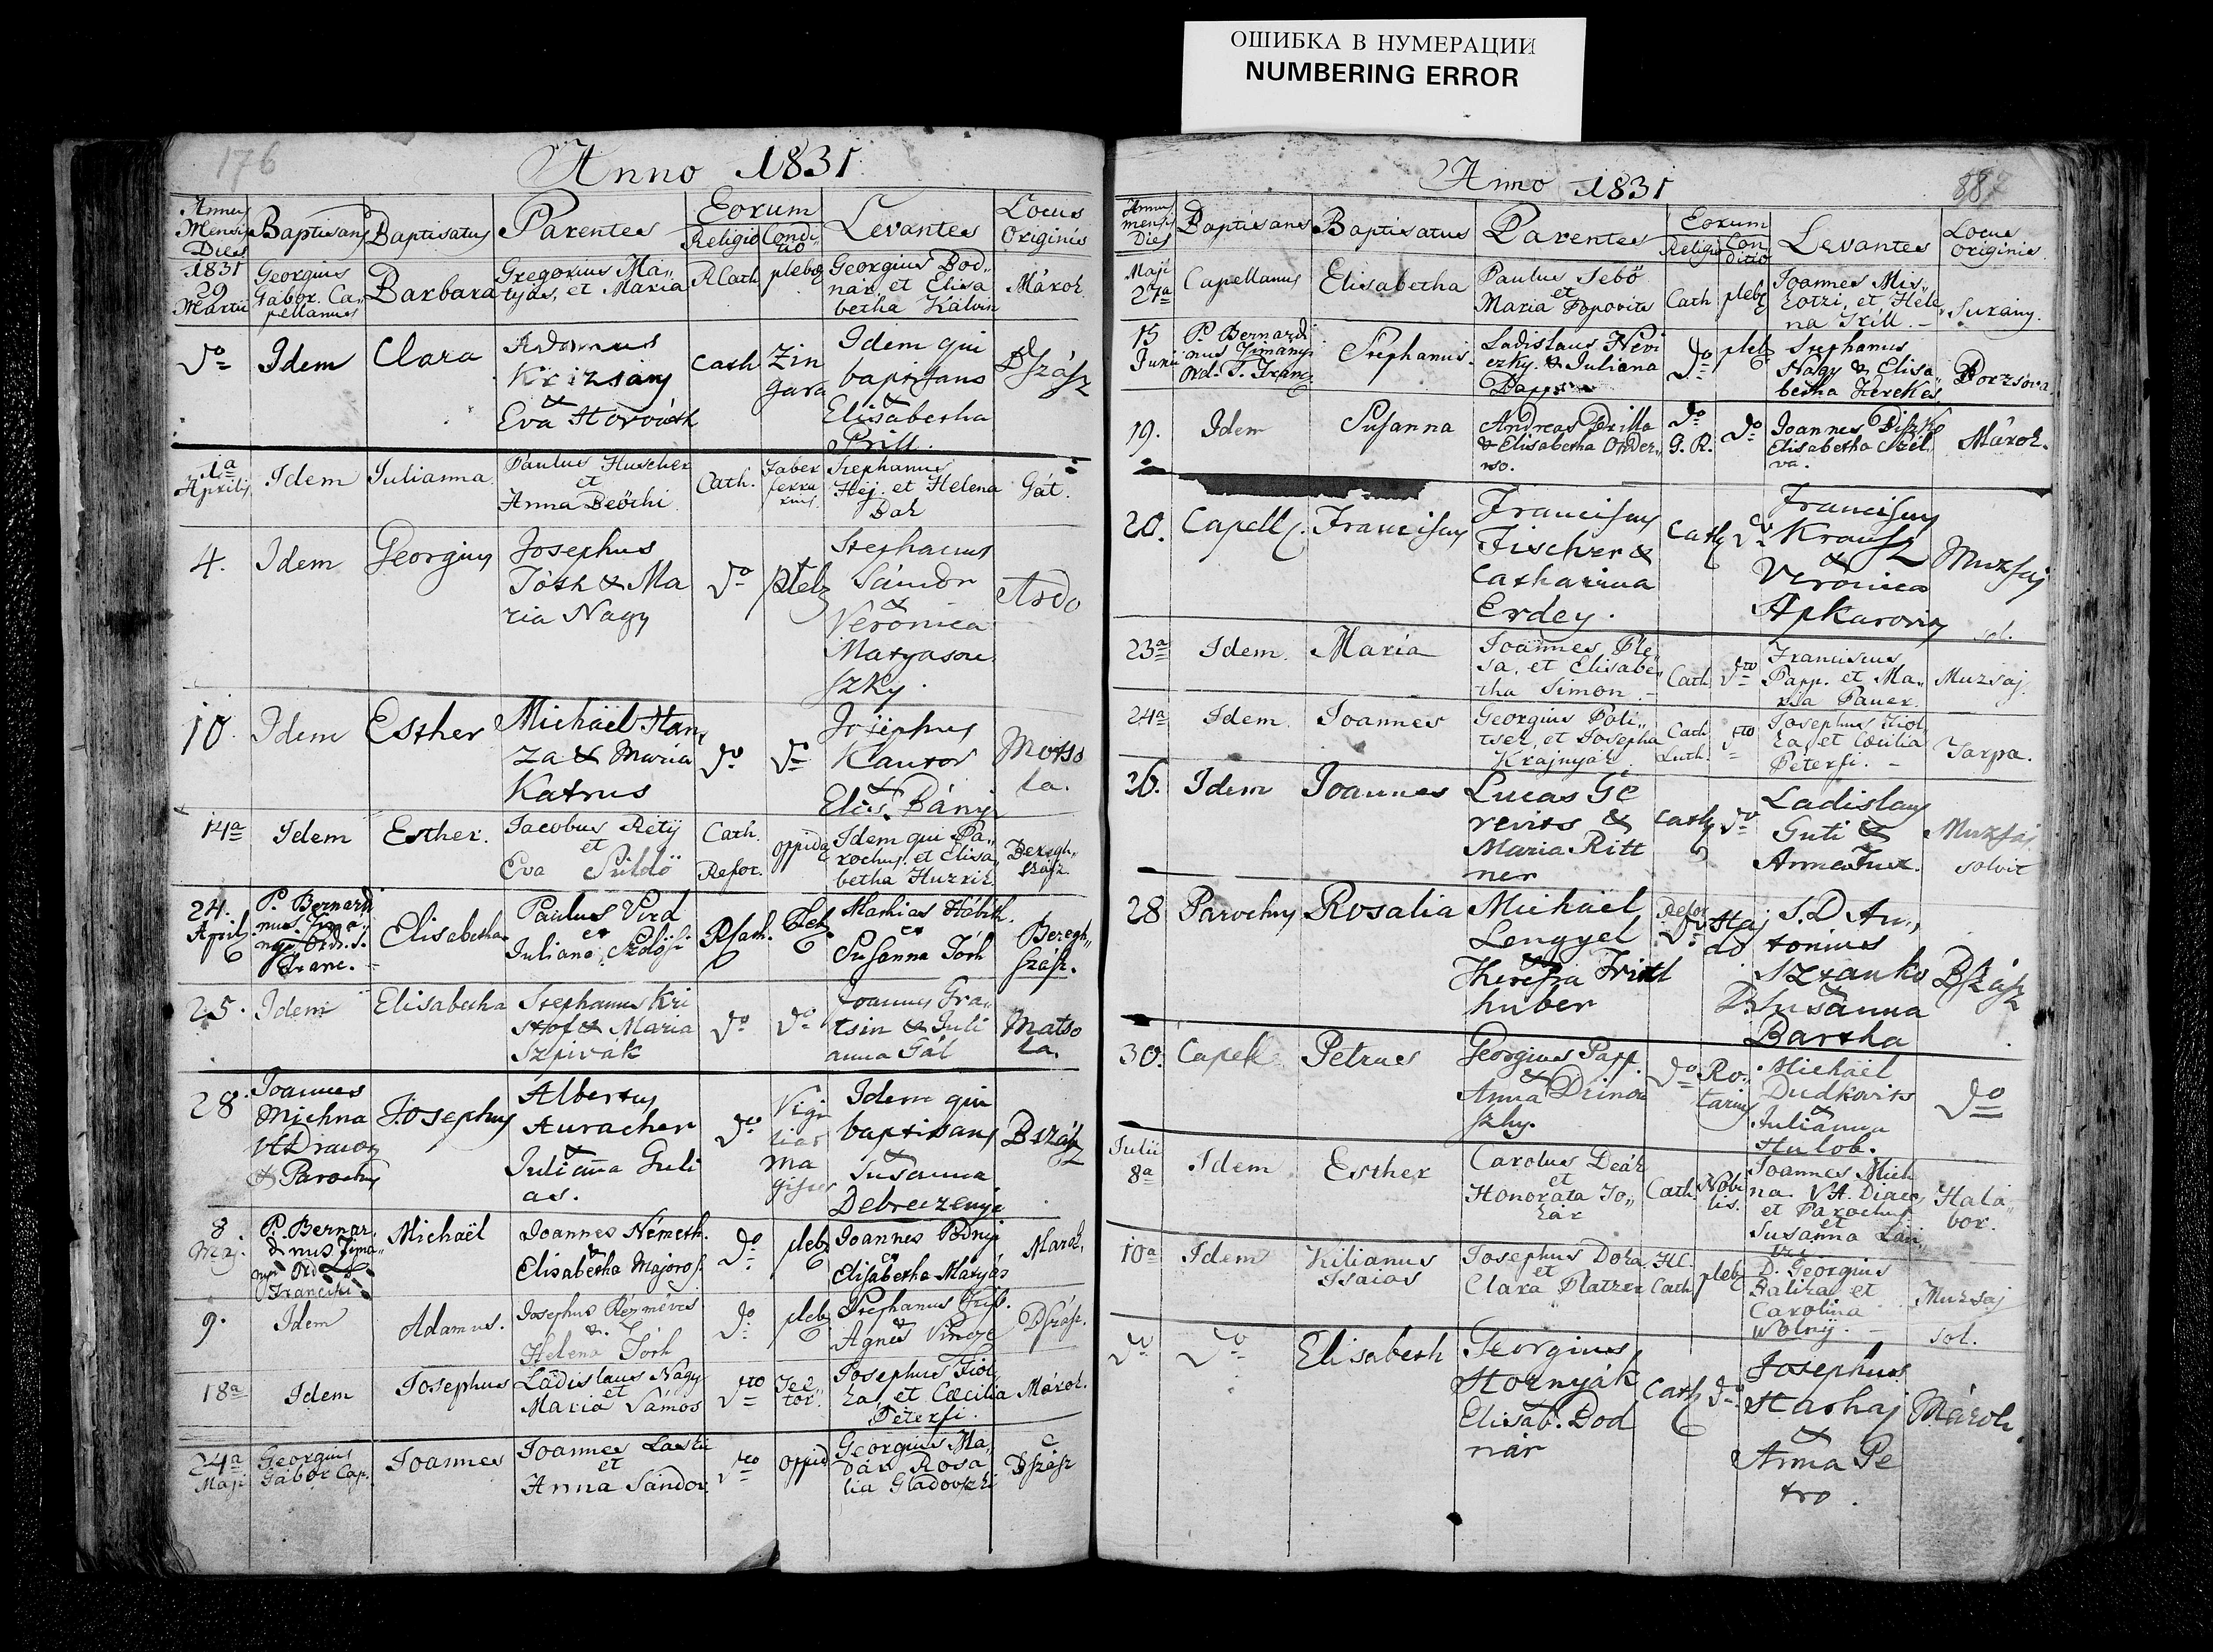 ОШИБКА В НУМЕРАЦИИ
NUMBERING ERROR
176
Anno 1831
Annus Mensis Dies
Baptisans
Baptisatus
Parentes
Eorum
Religio
Condi„tio
Levantes
Locus Originis
1831 29 Martii
Georgius Gábor. Ca„pellanus
Barbara
Gregorius Má„tyás, et Maria
RCath
plebs
Georgius Bod„nár, et Elisabetha Kálvin
Márok
do
Idem
Clara
Adamus Krizsány & Eva Horváth
Cath
Zingara
Idem qui baptisans & Elisabetha Prill.
BSzász
1a Aprilis
Idem
Julianna
Paulus Huscher et Anna Beöthi
Cath.
Faber ferrarius
Stephanus Héj. et Helena Bak
Gát.
4.
Idem
Georgius
Josephus Tóth & Maria Nagy
do
pleb
Stephanus Sándor & Veronica Matyasou szky.
Ardo
10.
Idem
Esther
Michaël Han„za & Maria Katrus
do
do
Josephus Kantor & Elis. Bányi
Matsola.
14a
Idem
Esther.
Jacobus Réty et Eva Süldö
Cath. Refor.
oppid
Idem qui Pa„rochus. et Elisa„betha Huzrik
Beregh„szász
24. April
P. Bernardinus Ord. S. Franc.
Elisabetha
Paulus Vird et Juliana Szölösi
RCath.
Pleb
Mathias Hábih. et Susanna Tóth
Beregh„szász.
25.
Idem
Elisabetha
Stephanus Kristof & Maria Szpivák
do
do
Joannes Gra„tsin & Julianna Gál
Matsola.
28.
Joannes Michna VADiacon & Parochus
Josephus
Albertus Auracher & Julianna Gulias.
do
Vigiliar Magister
Idem qui baptisans & Susanna Debreczenyi
BSzász
8. Maj.
P. Bernardinus Ord. Francisci
Michaël
Joannes Németh. & Elisabetha Majoros
do
pleb
Joannes Podnyi et Elisabetha Matyás
Marok.
9.
Idem
Adamus.
Josephus Rézmüves &. Helena Tóth
do
pleb
Stephanus Friss. & Agnes Vincze
BSzász.
18a
Idem
Josephus
Ladislaus Nagy et Maria Vámos
dto
Tector.
Josephus Fiol„ka, et Cœcilia Péterfi.
Márok.
24a Maji
Georgius Gábor Cap.
Joannes
Joannes et Anna Sándor
dto
oppid
Georgius Ma„dár Rosalia Gladovszki
BSzász
Anno 1831
887
Annus mensis Dies
Baptisans
Baptisatus
Parentes
Eorum
Religio
Conditio
Levantes
Locus originis
Maji 27a
Capellanus
Elisabetha
Paulus Sebö et Maria Popovits
Cath
plebs
Joannes Mis„kotzi, et Hele„na Krill.
Surány.
15 Junii
P. Bernardinus Ord. S. Franc.
Stephanus.
Ladislaus Neviczky. & Juliana Papp
do
pleb
Stephanus Nagy & Elisa„betha Kerekes
Borzsova.
19.
Idem
Susanna
Andreas Prilla & Elisabetha
do G.R.
do
Joannes Elisabetha
Márok.
20.
Capell.
Franciscus
Franciscus Fischer & Catharina Erdey.
Cath
do
Franciscus Krausz & Veronica Apkarovits
Muzsaj
sol.
23a
Idem.
Maria
Joannes Ple„sa, et Elisabe„tha Simon.
Cath
dto
Franciscus Papp. et Ma„ria Pauer.
Muzsaj.
24a
Idem.
Joannes
Georgius Poli„tsek, et Josepha Krajnyák
Cath Luth.
dto
Josephus Fiol„ka, et Cœcilia Péterfi.
Tarpa.
26.
Idem
Joannes
Lucas Gerevits & Maria Rittner
Cath
do
Ladislaus Guti & Anna Fux.
Muzsaj
solvit
28
Parochus
Rosalia
Michaël Lengyel & Theresia Frindhuber
Refor do
Hajdo
S. D. An„tonius Sztanko & D. Susanna Bartha
BSzász
30.
Capell.
Petrus
Georgius Papp. & Anna
do
Rotarius
Michaël Dudkovits & Julianna Hulob.
do
Julii 8a
Idem
Esther
Carolus Deák et Honorata To„kár
Cath.
Nobilis.
Joannes Michna. VA. Diaco et Parochus et Susanna
Halá„bor.
10a
Idem
Kilianus Isaias
Josephus Doka. et Clara Platzer
HC. Cath
pleb
D. Georgius Balika et Carolina Wolny.
Muzsaj
sol.
do
do
Elisabeth
Georgius Hornyák Elisab. Bodnár
Cath
do
Josephus Harhaj & Anna Petro.
Márok.